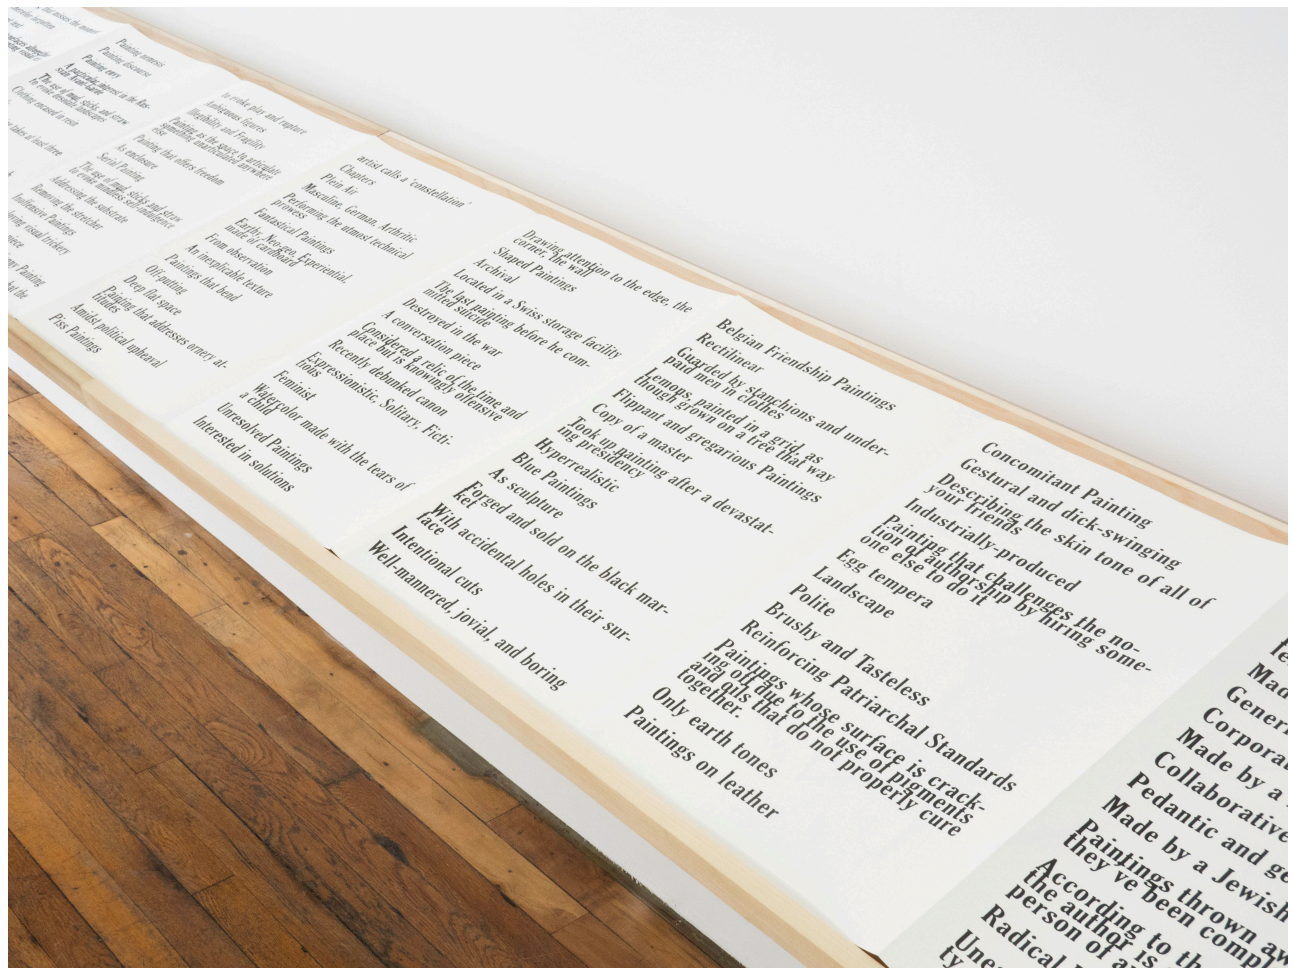 Painting nemesis
Painting discourse
Painting envy
A particular interest in the Rus-
sian Avant-Garde
The use of mud, sticks, and straw
to evoke desolate landscapes
Clothing encased in resin
to evoke play and rupture
Ambiguous figures
Illegibility and Fragility
Painting as the space to articulate
something unarticulated anywhere
else
Painting that offers freedom
As enclosure
Serial Painting
The use of mud, sticks and straw
to evoke mindless self-indulgence
Addressing the substrate
Removing the stretcher
Inoffensive Paintings
artist calls a 'constellation'
Chapters
Plein Air
Masculine, German, Arthritic
Performing the utmost technical
prowess
Fantastical Paintings
Earthy, Neo-geo, Experiential,
made of cardboard
From observation
An inexplicable texture
Paintings that bend
Off-putting
Deep flat space
Painting that addresses ornery at-
titudes
Amidst political upheaval
Piss Paintings
Drawing attention to the edge, the
corner, the wall
Shaped Paintings
Archival
Located in a Swiss storage facility
The last painting before he com-
mitted suicide
Destroyed in the war
A conversation piece
Considered a relic of the time and
place but is knowingly offensive
Recently debunked canon
Expressionistic, Solitary, Ficti-
tious
Feminist
Watercolor made with the tears of
a child
Unresolved Paintings
Interested in solutions
Belgian Friendship Paintings
Rectilinear
Guarded by stanchions and under-
paid men in clothes
Lemons, painted in a grid, as
though grown on a tree that way
Flippant and gregarious Paintings
Copy of a master
Took up painting after a devastat-
ing presidency
Hyperrealistic
Blue Paintings
As sculpture
Forged and sold on the black mar-
ket
With accidental holes in their sur-
face
Intentional cuts
Well-mannered, jovial, and boring
Concomitant Painting
Gestural and dick-swinging
Describing the skin tone of all of
your friends
Industrially-produced
Painting that challenges the no-
tion of authorship by hiring some-
one else to do it
Egg tempera
Landscape
Polite
Brushy and Tasteless
Reinforcing Patriarchal Standards
Paintings whose surface is crack-
ing off due to the use of pigments
and oils that do not properly cure
together.
Only earth tones
Paintings on leather
Made by a
Collaborative
Pedantic and
Made by a Jewish
Paintings thrown
they've been
According to
the author is
person of
Radical